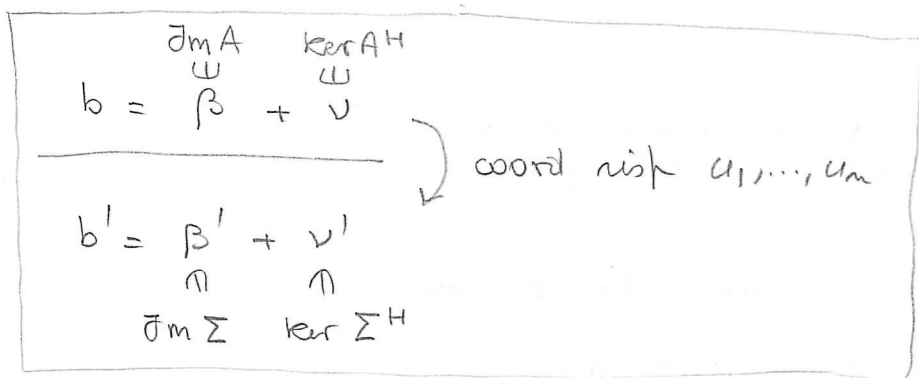 Im A ker Aᴴ
⋓ ⋓
b = β + ν
coord risp u₁,...,uₘ
b' = β' + ν'
⋒ ⋒
Im Σ ker Σᴴ